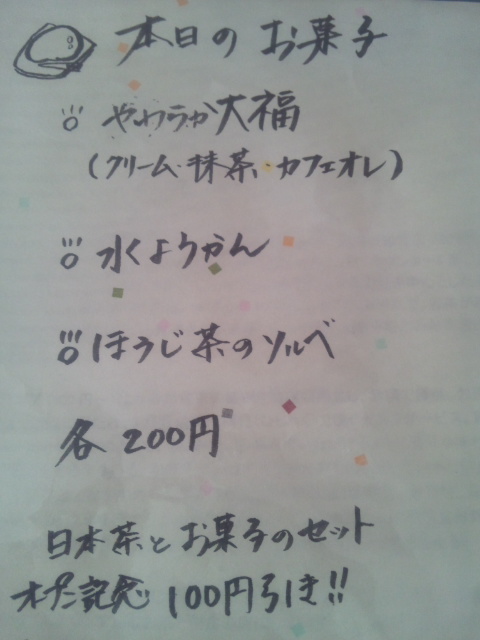 本日のお菓子
やわらか大福
(クリーム・抹茶・カフェオレ)
水ようかん
ほうじ茶のソルベ
各 200円
日本茶とお菓子のセット
オープン記念 100円引き!!